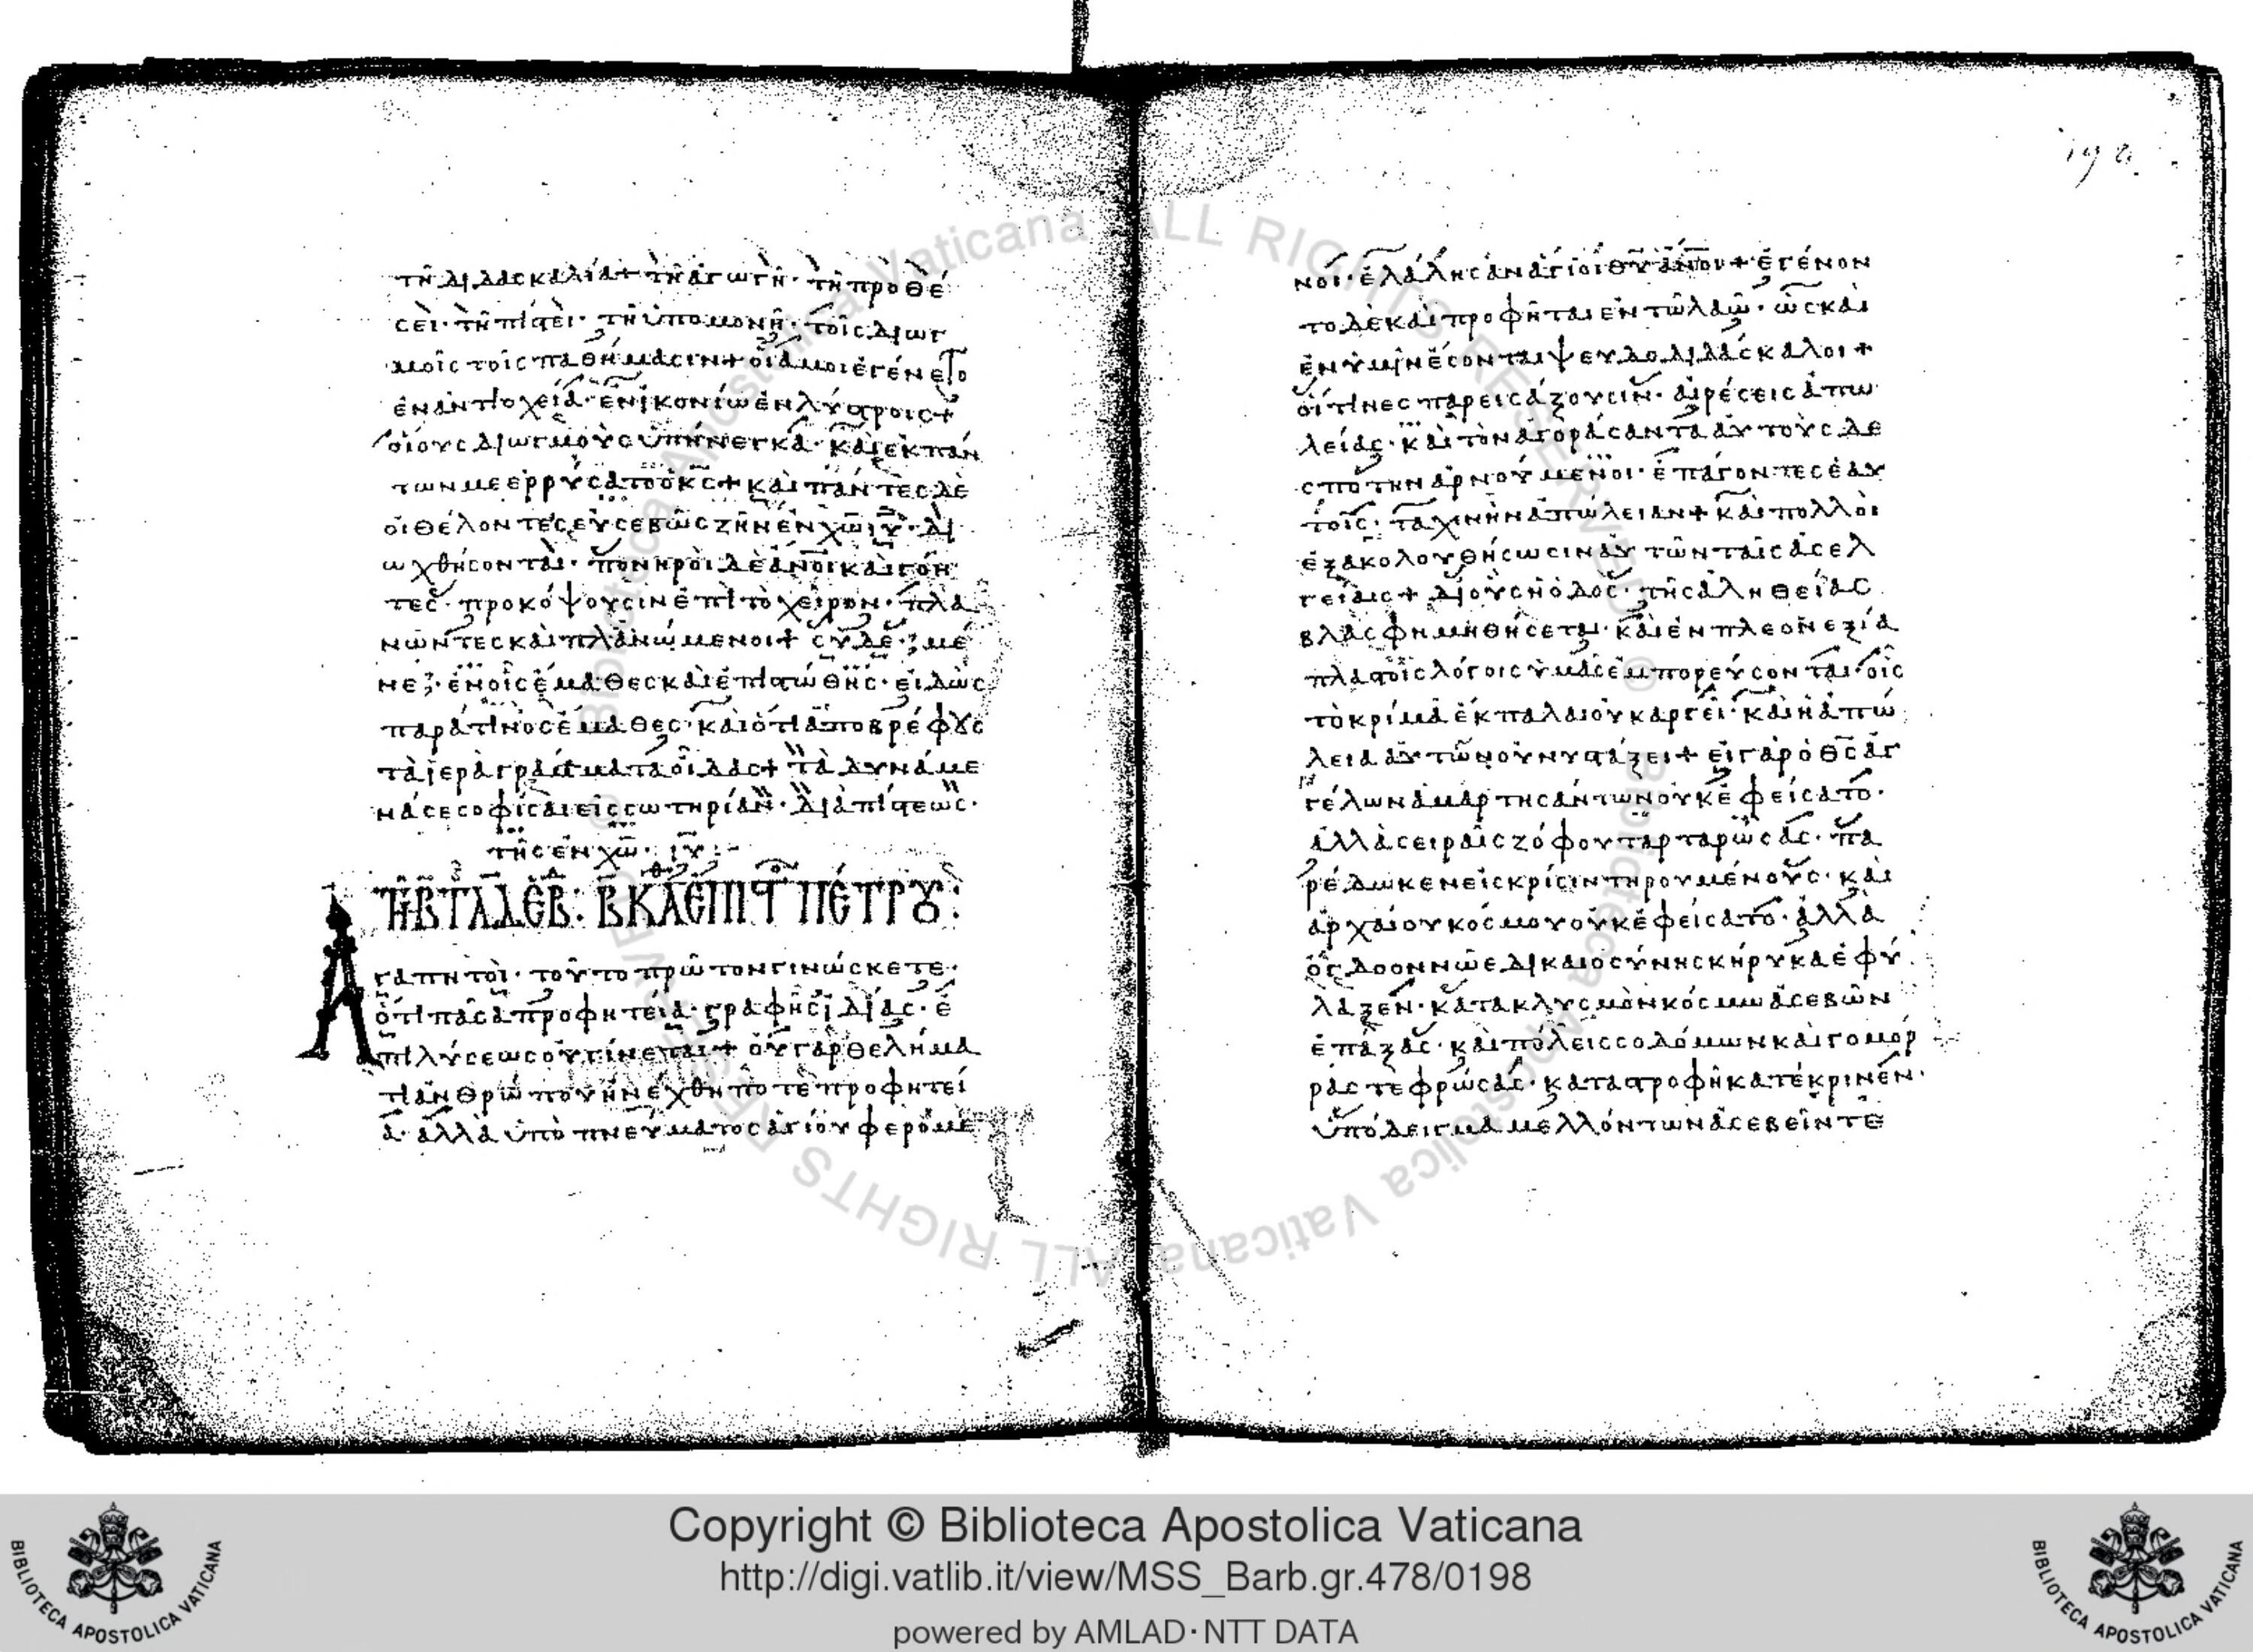 τῆ διδασκαλία+ τῆ ἀγωγῆ· τῆ προθέ
σει· τῆ πίστει· τῆ ὑπομονῆ· τοῖς διωγ
μοῖς τοῖς παθήμασιν+ οἷά μοι ἐγένετο
ἐν ἀντιοχεία· ἐν ἰκονίω ἐν λύστροις+
οἵους διωγμοὺς ὑπήνεγκα· καὶ ἐκ πάν
των με ἐρρύσατο ὁ κς+ καὶ πάντες δὲ
οἱ θέλοντες εὐσεβῶς ζῆν ἐν χω ιυ· δι
ωχθήσονται· πονηροὶ δὲ ἄνοι καὶ γόη
τες· προκόψουσιν ἐπὶ τὸ χεῖρον· πλα
νῶντες καὶ πλανώμενοι+ σὺ δὲ μέ
νε· ἐν οἷς ἔμαθες καὶ ἐπιστώθης· εἰδὼς
παρὰ τίνος ἔμαθες· καὶ ὅτι ἀπὸ βρέφους
τὰ ἱερὰ γράμματα οἶδας+ τὰ δυνάμε
νά σε σοφίσαι εἰς σωτηρίαν· διὰ πίστεως·
τῆς ἐν χω· ιυ·
πέτρου:
Ἀγαπητοὶ· τοῦτο πρῶτον γινώσκετε·
ὅτι πᾶσα προφητεία· γραφῆς ἰδίας· ἐ
πιλύσεως οὐ γίνεται+ οὐ γὰρ θελήμα
τι ἀνθρώπου ἠνέχθη ποτὲ προφητεί
α· ἀλλὰ ὑπὸ πνεύματος ἁγίου φερόμε
190.
νοι· ἐλάλησαν ἅγιοι θυ ἄνοι+ ἐγένον
το δὲ καὶ προφῆται ἐν τῶ λαῶ· ὡς καὶ
ἐν ὑμῖν ἔσονται ψευδοδιδάσκαλοι+
οἵτινες παρεισάξουσιν· αἱρέσεις ἀπω
λείας· καὶ τὸν ἀγοράσαντα αὐτοὺς δε
σπότην ἀρνούμενοι· ἐπάγοντες ἑαυ
τοῖς· ταχινὴν ἀπώλειαν+ καὶ πολλοὶ
ἐξακολουθήσωσιν αὐτῶν ταῖς ἀσελ
γείαις+ δι οὓς ἡ ὁδὸς· τῆς ἀληθείας
βλασφημηθήσεται· καὶ ἐν πλεονεξία
πλαστοῖς λόγοις ὑμᾶς ἐμπορεύσονται· οἷς
τὸ κρίμα ἔκπαλαι οὐκ ἀργεῖ· καὶ ἡ ἀπώ
λεια αὐτῶν οὐ νυστάζει+ εἰ γὰρ ὁ θς ἀγ
γέλων ἁμαρτησάντων οὐκ ἐφείσατο·
ἀλλὰ σειραῖς ζόφου ταρταρώσας· πα
ρέδωκεν εἰς κρίσιν τηρουμένους· καὶ
ἀρχαίου κόσμου οὐκ ἐφείσατο· ἀλλὰ
ὄγδοον νῶε δικαιοσύνης κήρυκα ἐφύ
λαξεν· κατακλυσμὸν κόσμω ἀσεβῶν
ἐπάξας· καὶ πόλεις σοδόμων καὶ γομόρ
ρας τεφρώσας· καταστροφῆ κατέκρινεν·
ὑπόδειγμα μελλόντων ἀσεβεῖν τε
Copyright © Biblioteca Apostolica Vaticana
http://digi.vatlib.it/view/MSS_Barb.gr.478/0198
powered by AMLAD·NTT DATA